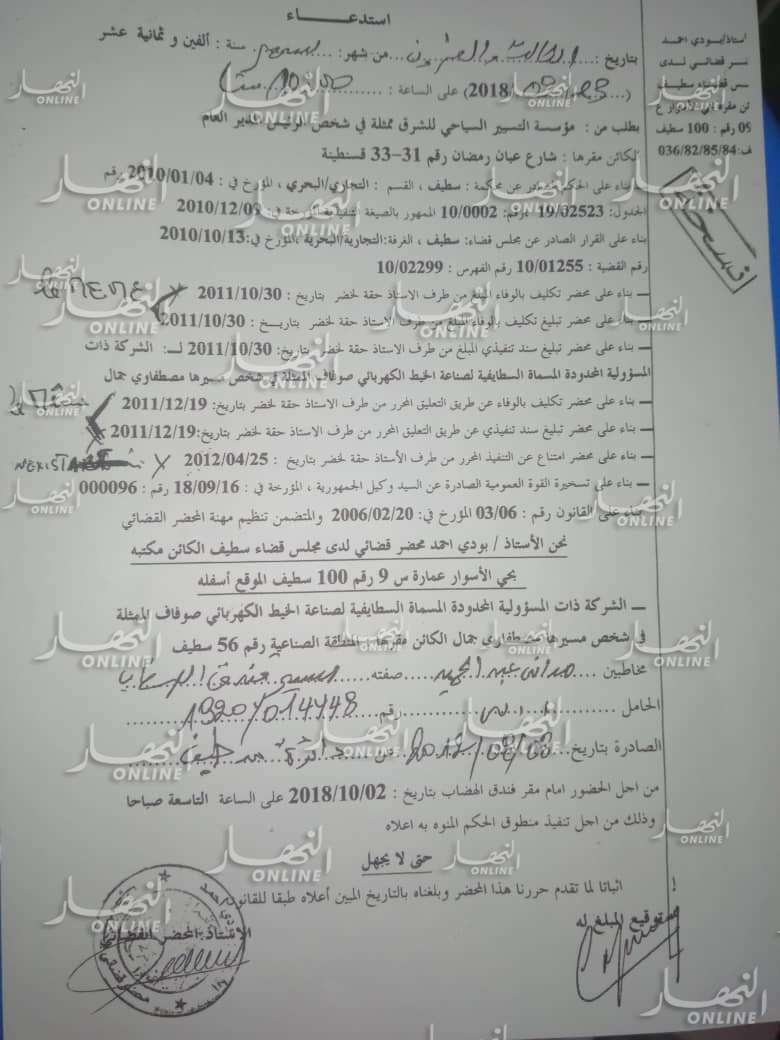 استدعـــــــاء
الأستاذ/بودي احمد
محضر قضائي لدى
مجلس قضاء سطيف
الكائن مقره بحي الأسوار ع
09 رقم: 100 سطيف
ف:036/82/85/84
نسخة
بتاريخ : الثالث والعشرون من شهر: سبتمبر سنة : ألفين و ثمانية عشر
(2018/09/23) على الساعة : 10.00
بطلب من : مؤسسة التسيير السياحي للشرق ممثلة في شخص الرئيس المدير العام
الكائن مقرها : شارع عبان رمضان رقم 31-33 قسنطينة
بناء على الحكم الصادر عن محكمة : سطيف ، القسم : التجاري/البحري ، المؤرخ في : 2010/01/04 رقم
الجدول: 19/02523 رقم: 10/0002 الممهور بالصيغة التنفيذية المؤرخة في: 2010/12/09
بناء على القرار الصادر عن مجلس قضاء: سطيف ، الغرفة:التجارية/البحرية ،المؤرخ في:2010/10/13
رقم القضية : 10/01255 رقم الفهرس : 10/02299
— بناء على محضر تكليف بالوفاء المبلغ من طرف الاستاذ حقة لخضر بتاريخ : 2011/10/30
بناء على محضر تبليغ تكليف بالوفاء المبلغ من طرف الاستاذ حقة لخضر بتاريـــخ : 2011/10/30
— بناء على محضر تبليغ سند تنفيذي المبلغ من طرف الاستاذ حقة لخضر بتاريخ: 2011/10/30 لــ: الشركة ذات
المسؤولية المحدودة المسماة السطايفية لصناعة الخيط الكهربائي صوفاف الممثلة في شخص مسيرها مصطفاوي جمال
— بناء على محضر تكليف بالوفاء عن طريق التعليق المحرر من طرف الاستاذ حقة لخضر بتاريخ: 2011/12/19
— بناء على محضر تبليغ سند تنفيذي عن طريق التعليق المحرر من طرف الاستاذ حقة لخضر بتاريخ:2011/12/19
— بناء على محضر امتناع عن التنفيذ المحرر من طرف الأستاذ حقة لخضر بتاريخ : 2012/04/25
— بناء على تسخيرة القوة العمومية الصادرة عن السيد وكيل الجمهورية ، المؤرخة في : 18/09/16 رقم : 000096
بناء على القانون رقم : 03/06 المؤرخ في: 2006/02/20 والمتضمن تنظيم مهنة المحضر القضائي
نحن الأستاذ / بودي احمد محضر قضائي لدى مجلس قضاء سطيف الكائن مكتبه
بحي الأسوار عمارة س 9 رقم 100 سطيف الموقع أسفله
— الشركة ذات المسؤولية المحدودة المسماة السطايفية لصناعة الخيط الكهربائي صوفاف الممثلة
في شخص مسيرها مصطفاوي جمال الكائن مقرها المنطقة الصناعية رقم 56 سطيف
مخاطبين عبد الحميد صفته
الحامل رقم
الصادرة بتاريخ 08/08 عن دائرة سطيف
من اجل الحضور امام مقر فندق الهضاب بتاريخ : 2018/10/02 على الساعة التاسعة صباحا
وذلك من اجل تنفيذ منطوق الحكم المنوه به اعلاه
حتى لا يجهل
اثباتا لما تقدم حررنا هذا المحضر وبلغناه بالتاريخ المبين أعلاه طبقا للقانون.
توقيع المبلغ له
الأستاذ المحضر القضائي
النهار ONLINE